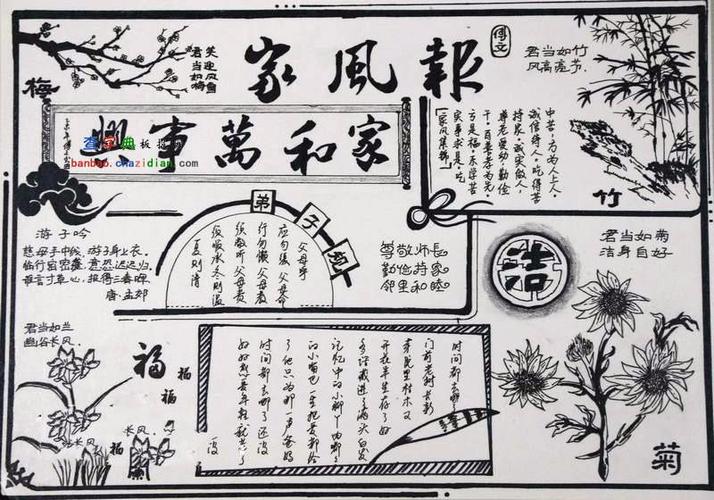 家風報
笑迎风雪
君当如梅
梅
君当如竹
风高亮节
家和萬事興
查字典 板报网
banbao.chazidian.com
【家风集锦】
实事求是。吃
亏是福。乐学苦
干。百善孝为先。
尊老爱幼。勤俭
持家。诚实做人,
诚信待人。吃得苦
中苦,方为人上人。
竹
游子吟
慈母手中线,游子身上衣。
临行密密缝,意恐迟迟归。
谁言寸草心,报得三春晖。
唐·孟郊
弟子规
父母呼
应勿缓 父母命
行勿懒 父母教
须敬听 父母责
须顺承 冬则温
夏则清
尊敬师长
勤俭持家
邻里和睦
洁
君当如菊
洁身自好
君当如兰
幽谷长风
福
福
福
福
长风
时间都去哪
门前老树长新
芽院里枯木又
开花半生存了好
多话藏进了满头白发
记忆中的小脚丫肉嘟嘟
的小嘴巴一生把爱交给
了他只为那一声爸妈
时间都去哪了还没
好好感受年轻就老了
菊